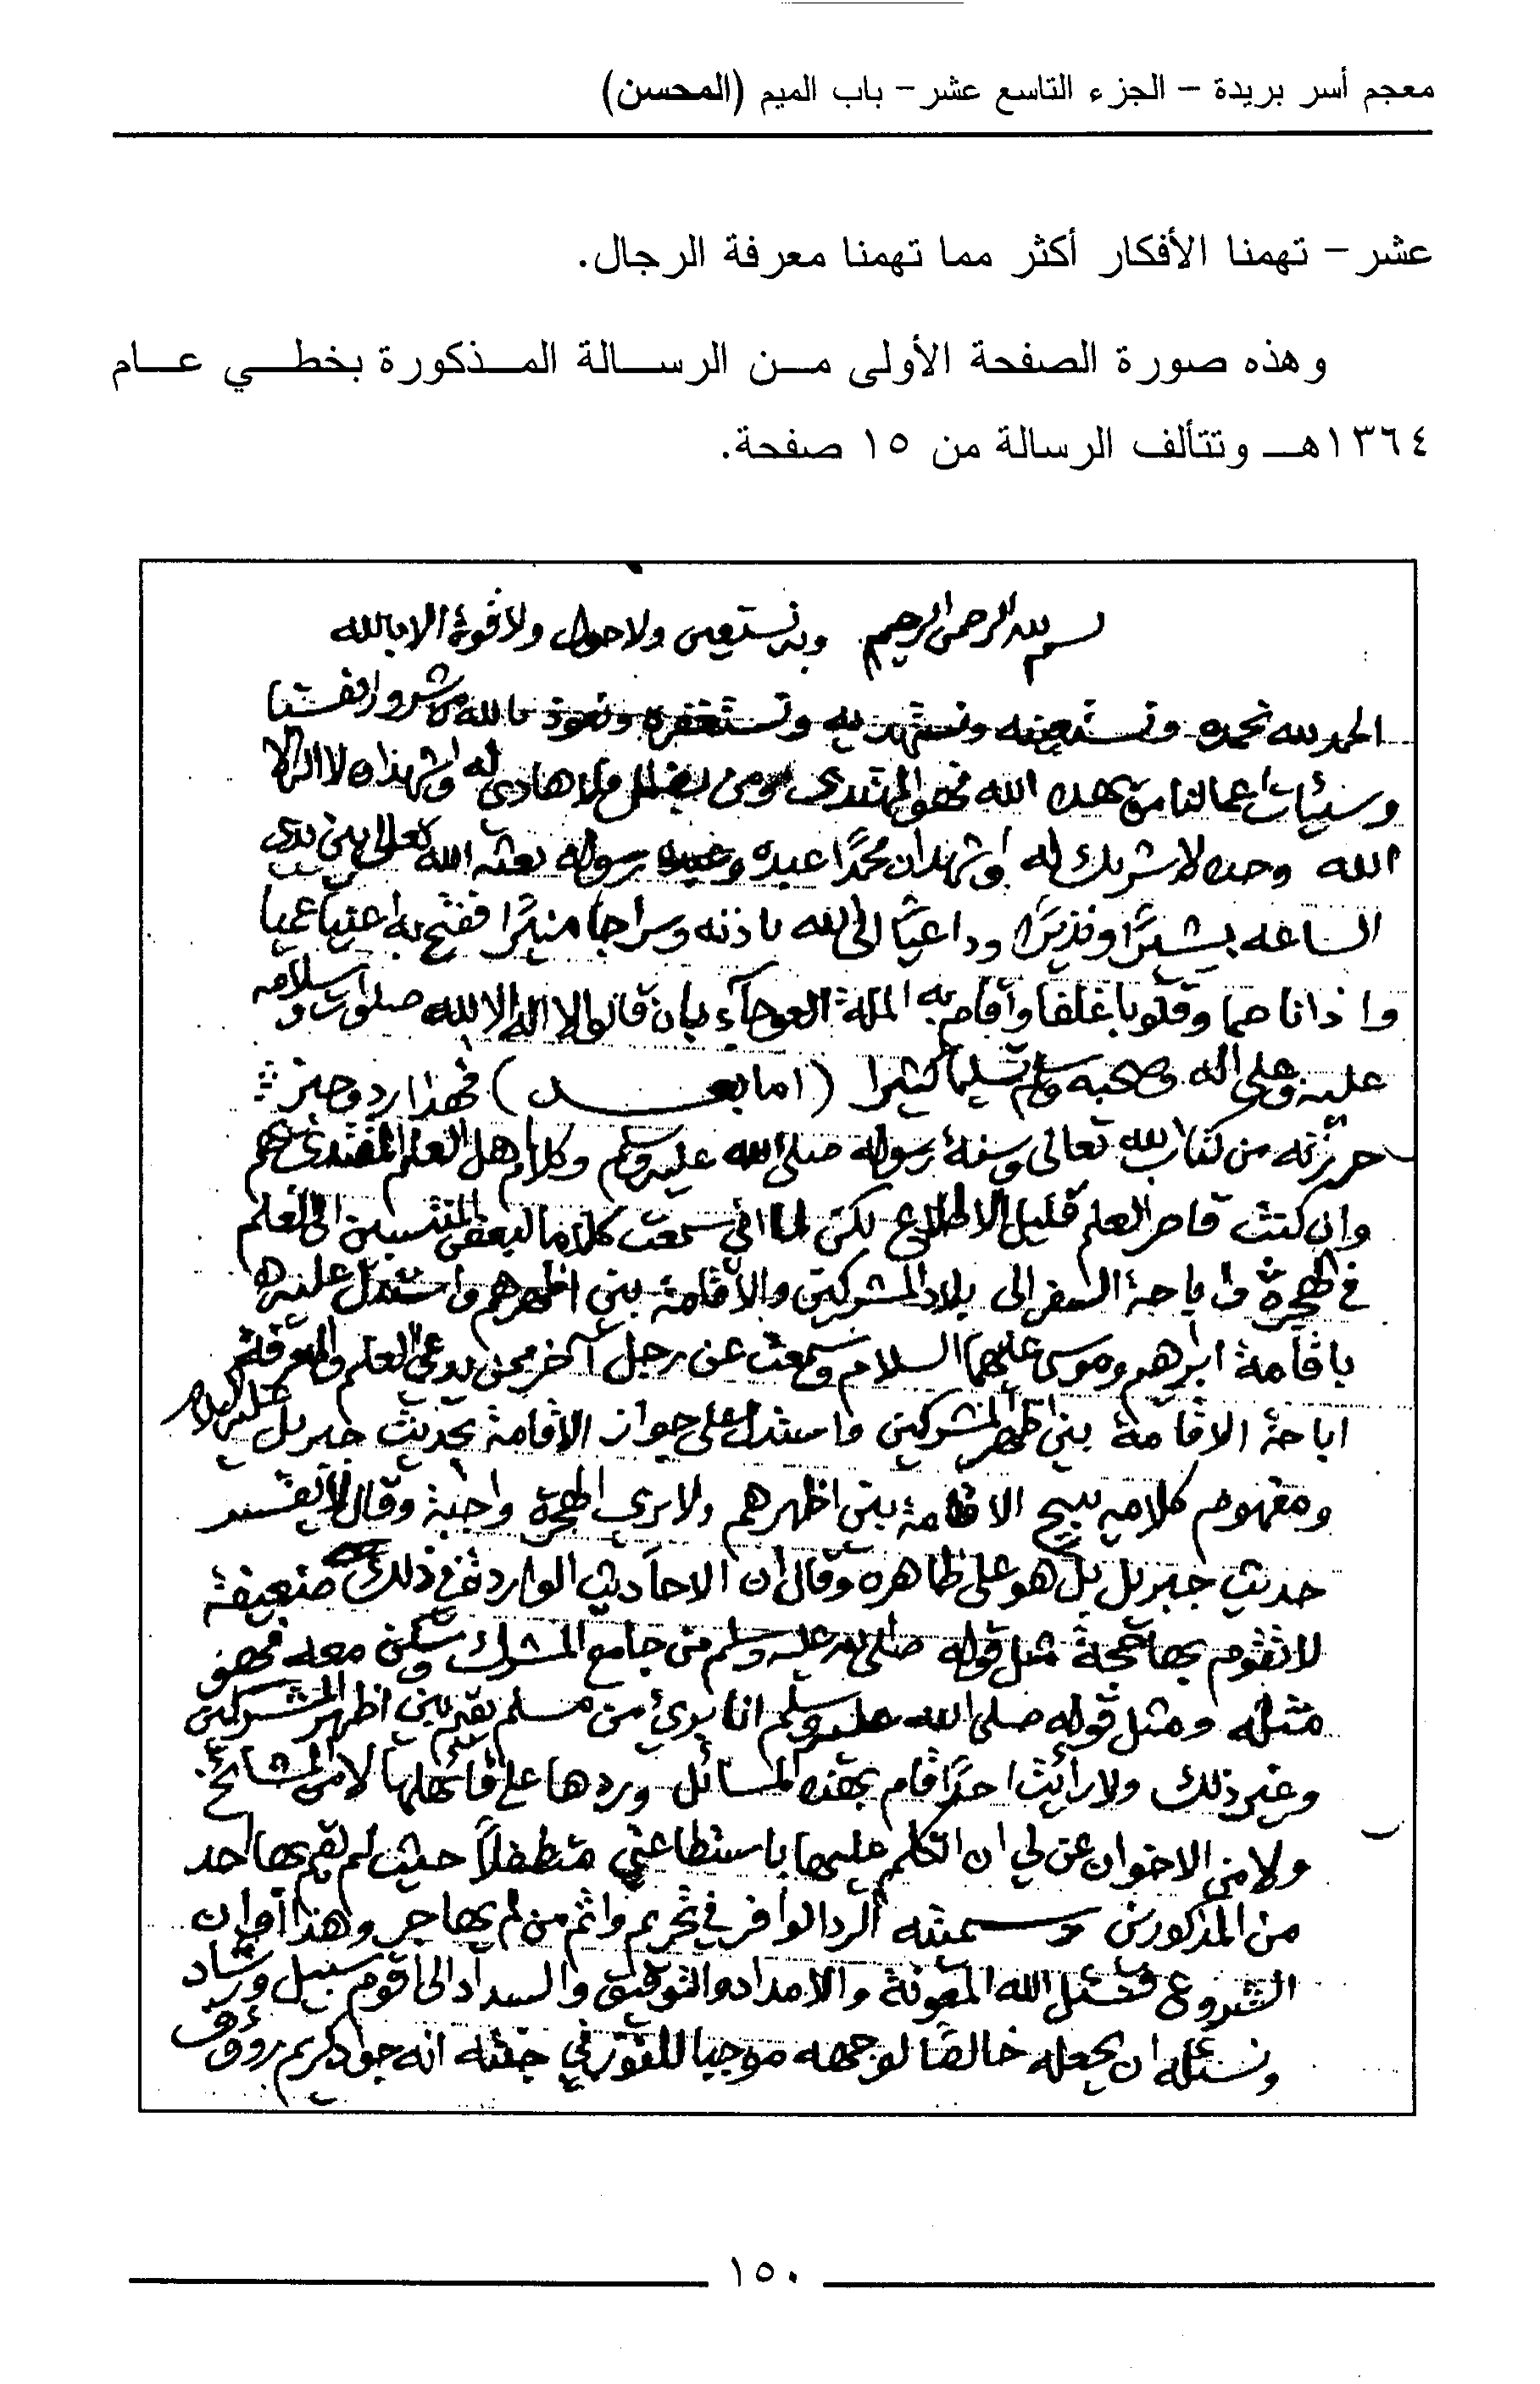 معجم أسر بريدة – الجزء التاسع عشر – باب الميم (المحسن)
عشر – تهمنا الأفكار أكثر مما تهمنا معرفة الرجال.
وهذه صورة الصفحة الأولى مــن الرســالة المــذكورة بخطــي عــام
١٣٦٤هــ وتتألف الرسالة من ١٥ صفحة.
بسم الله الرحمن الرحيم وبه نستعين ولا حول ولا قوة الا بالله
الحمد لله نحمده ونستعينه ونستهديه ونستغفره ونعوذ بالله من شرور انفسنا
وسيئات اعمالنا من يهده الله فهو المهتدي ومن يضلل فلا هادي له واشهد ان لا اله الا
الله وحده لا شريك له واشهد ان محمدًا عبده ورسوله بعثه الله تعالى بين يدي
الساعه بشيرًا ونذيرًا وداعيًا الى الله باذنه وسراجا منيرًا ففتح به اعينا عميا
واذانا صما وقلوبا غلفا واقام به الملة العوجآء بان قالوا لا اله الا الله صلوات وسلامه
عليه وعلى اله وصحبه وسلم تسليما كثيرا (اما بعـــد) فهذا رد وجيز
حررته من كتاب الله تعالى وسنة رسوله صلى الله عليه وسلم وكلام اهل العلم المقتدى بهم
وان كنت قاصر العلم قليل الاطلاع لكن لما اني سمعت كلاما لبعض المنتسبين الى العلم
في الهجرة واباحة السفر الى بلاد المشركين والاقامة بين اظهرهم واستدل عليه
باقامة ابرهيم وموسى عليهما السلام وسمعت عن رجل آخر ممن يدعي العلم والمعرفة
اباحة الاقامة بين اظهر المشركين واستدل على جواز الاقامة بحديث جبريل عليه السلام
ومفهوم كلامه يبيح الاقامة بين اظهرهم ولا يرى الهجرة واجبة وقال لا يفسر
حديث جبريل بل هو على ظاهره وقال ان الاحاديث الوارد في ذلك ضعيفة
لا تقوم بها حجة مثل قوله صلى الله عليه وسلم من جامع المشرك وسكن معه فهو
مثله ومثل قوله صلى الله عليه وسلم انا بريء من مسلم يقيم بين اظهر المشركين
وغير ذلك ولا رأيت احدًا قام بهذه المسائل وردها على قائلها لا من المشائخ
ولا من الاخوان عن لي ان اتكلم عليها باستطاعتي متطفلاً حيث لم يقم بها احد
من المذكورين وسميته الرد الوافر في تحريم واثم من لم يهاجر وهذا أوان
الشروع فنسئل الله المعونة والامداد والتوفيق والسداد الى اقوم سبيل ورشاد
ونسئله ان يجعله خالصًا لوجهه موجبا للفوز في جنته انه جواد كريم رؤوف
١٥٠